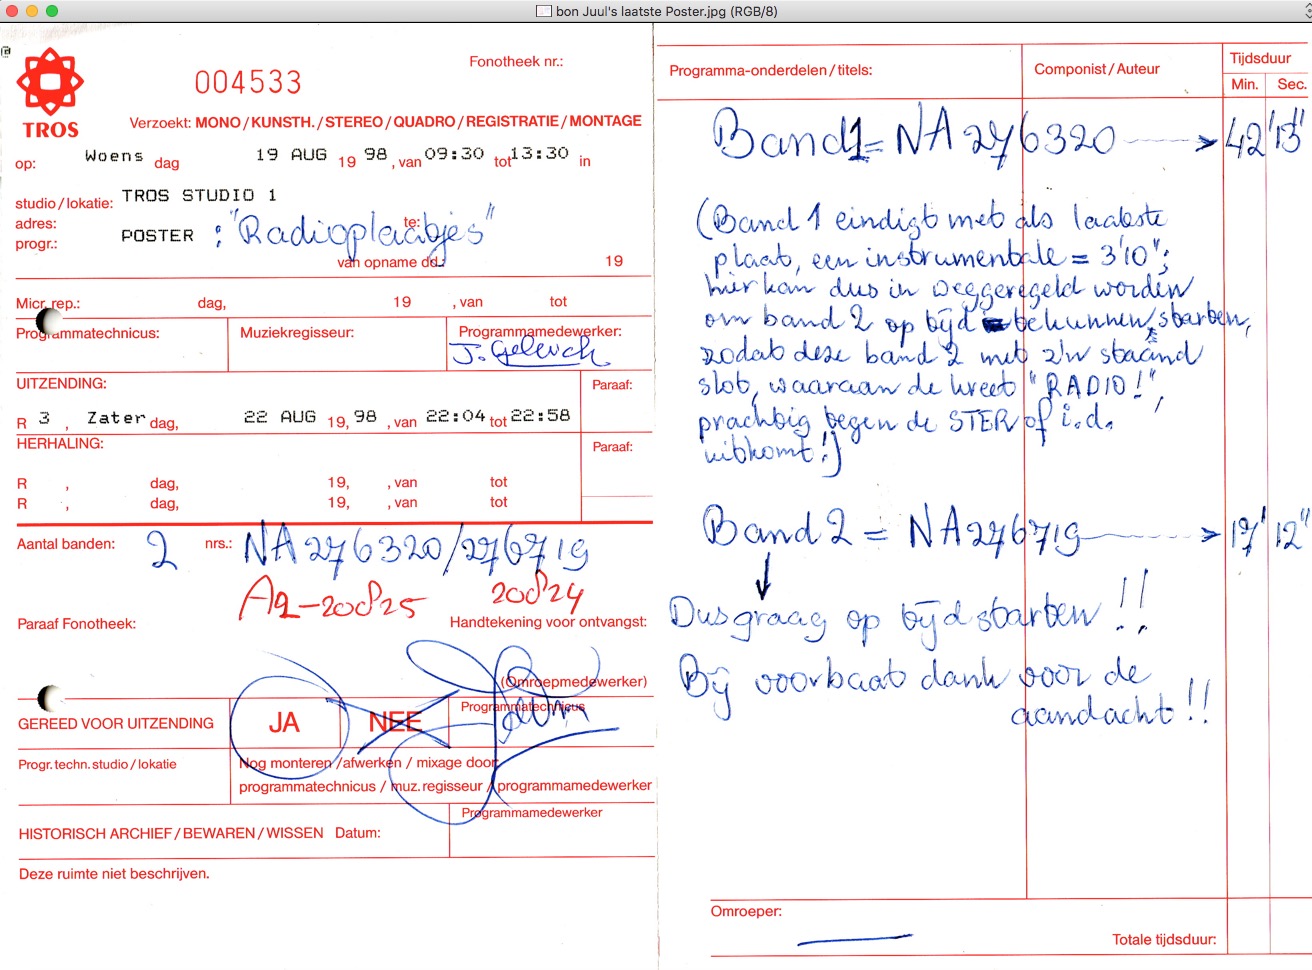 bon Juul's laatste Poster.jpg (RGB/8)
TROS
004533
Fonotheek nr.:
Verzoekt: MONO / KUNSTH. / STEREO / QUADRO / REGISTRATIE / MONTAGE
op: Woens dag 19 AUG 19 98 , van 09:30 tot 13:30 in
studio / lokatie: TROS STUDIO 1
adres: te:
progr.: POSTER : "Radioplaatjes"
van opname dd.
19
Micr. rep.: dag, 19 , van tot
Programmatechnicus:
Muziekregisseur:
Programmamedewerker:
J. Geleuch
UITZENDING:
Paraaf:
R 3 , Zater dag, 22 AUG 19, 98 , van 22:04 tot 22:58
HERHALING:
Paraaf:
R , dag, 19, , van tot
R , dag, 19, , van tot
Aantal banden: 2 nrs.: NA276320/276719
A2-200825 200824
Paraaf Fonotheek:
Handtekening voor ontvangst:
(Omroepmedewerker)
GEREED VOOR UITZENDING
JA
NEE
Programmatechnicus
Progr. techn. studio / lokatie
Nog monteren / afwerken / mixage door
programmatechnicus / muz. regisseur / programmamedewerker
Programmamedewerker
HISTORISCH ARCHIEF / BEWAREN / WISSEN Datum:
Deze ruimte niet beschrijven.
Programma-onderdelen / titels:
Componist / Auteur
Tijdsduur
Min. Sec.
Band 1 = NA 276320 → 42' 13"
(Band 1 eindigt met als laatste
plaat, een instrumentale = 3'10";
hier kan dus in weggeregeld worden
om band 2 op tijd te kunnen starten,
zodat deze band 2 met z'n staand
slot, waaraan de kreet "RADIO!",
prachtig tegen de STER of i.d.
uitkomt!)
Band 2 = NA276719 → 17' 12"
Dus graag op tijd starten !!
Bij voorbaat dank voor de
aandacht !!
Omroeper:
Totale tijdsduur: